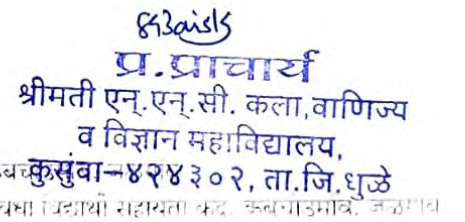 प्र.प्राचार्य
श्रीमती एन्.एन्.सी. कला,वाणिज्य
व विज्ञान महाविद्यालय,
कुसुंबा-४२४३०२, ता.जि.धुळे
विद्यार्थी सहायता केंद्र, जळगाव